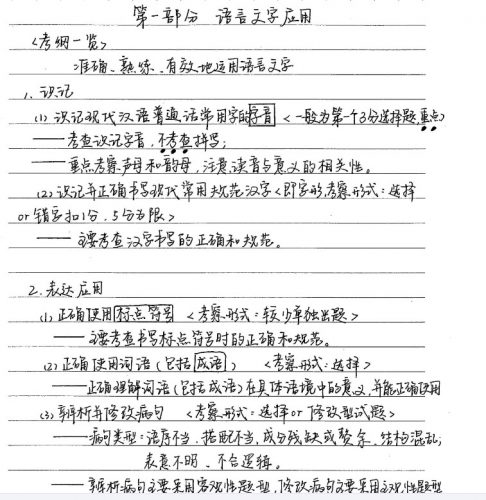 第一部分 语言文字应用
<考纲一览>
准确、熟练、有效地运用语言文字
1. 识记
(1) 识记现代汉语普通话常用字的字音 <一般为第一个3分选择题,重点>
——考查识记字音,不考查拼写;
——重点考察声母和韵母,注意读音与意义的相关性。
(2) 识记并正确书写现代常用规范汉字<即字形,考察形式:选择
or 错字扣1分,5分为限>
——主要考查汉字书写的正确和规范。
2. 表达应用
(1) 正确使用标点符号 <考察形式:较少单独出题>
——主要考查书写标点符号时的正确和规范。
(2) 正确使用词语(包括成语) <考察形式:选择>
——正确理解词语(包括成语)在具体语境中的意义,并能正确使用
(3) 辨析并修改病句 <考察形式:选择or修改型试题>
——病句类型:语序不当、搭配不当、成分残缺或赘余、结构混乱;
表意不明、不合逻辑。
——辨析病句主要采用客观性题型,修改病句主要采用主观性题型